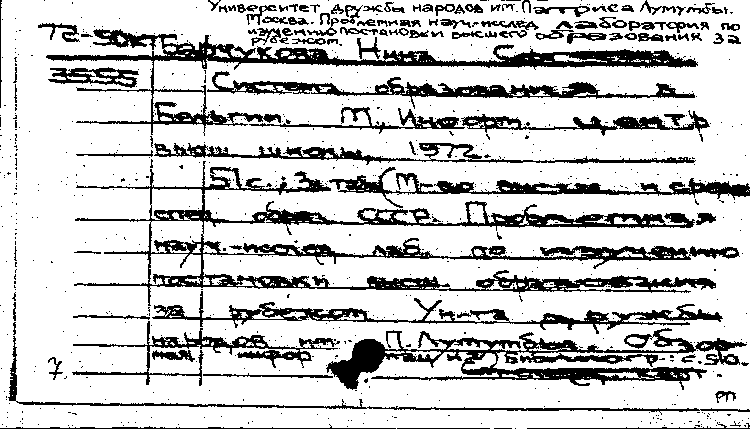 Университет дружбы народов им. Патриса Лумумбы.
Москва. Проблемная науч.-исслед. лаборатория по
изучению постановки высшего образования за
рубежом.
72-50кт Барчукова Нина
3555 Система образования в
Бельгии. М., Информ. центр
высш. школы, 1972.
51 с.; 3 л. табл. (М-во высш. и средн.
спец. образ. СССР. Проблемная
науч.-исслед. лаб. по изучению
постановки высш. образования
за рубежом Ун-та дружбы
народов им. П. Лумумбы. Обзор-
ная информация) Библиогр.: с. 510.
7
рт